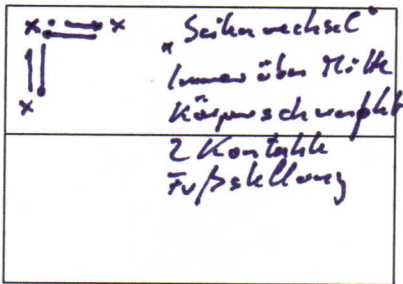 "Seitenwechsel"
Immer über Mitte
Körperschwerpkt
2 Kontakte
Fußstellung
x x
x